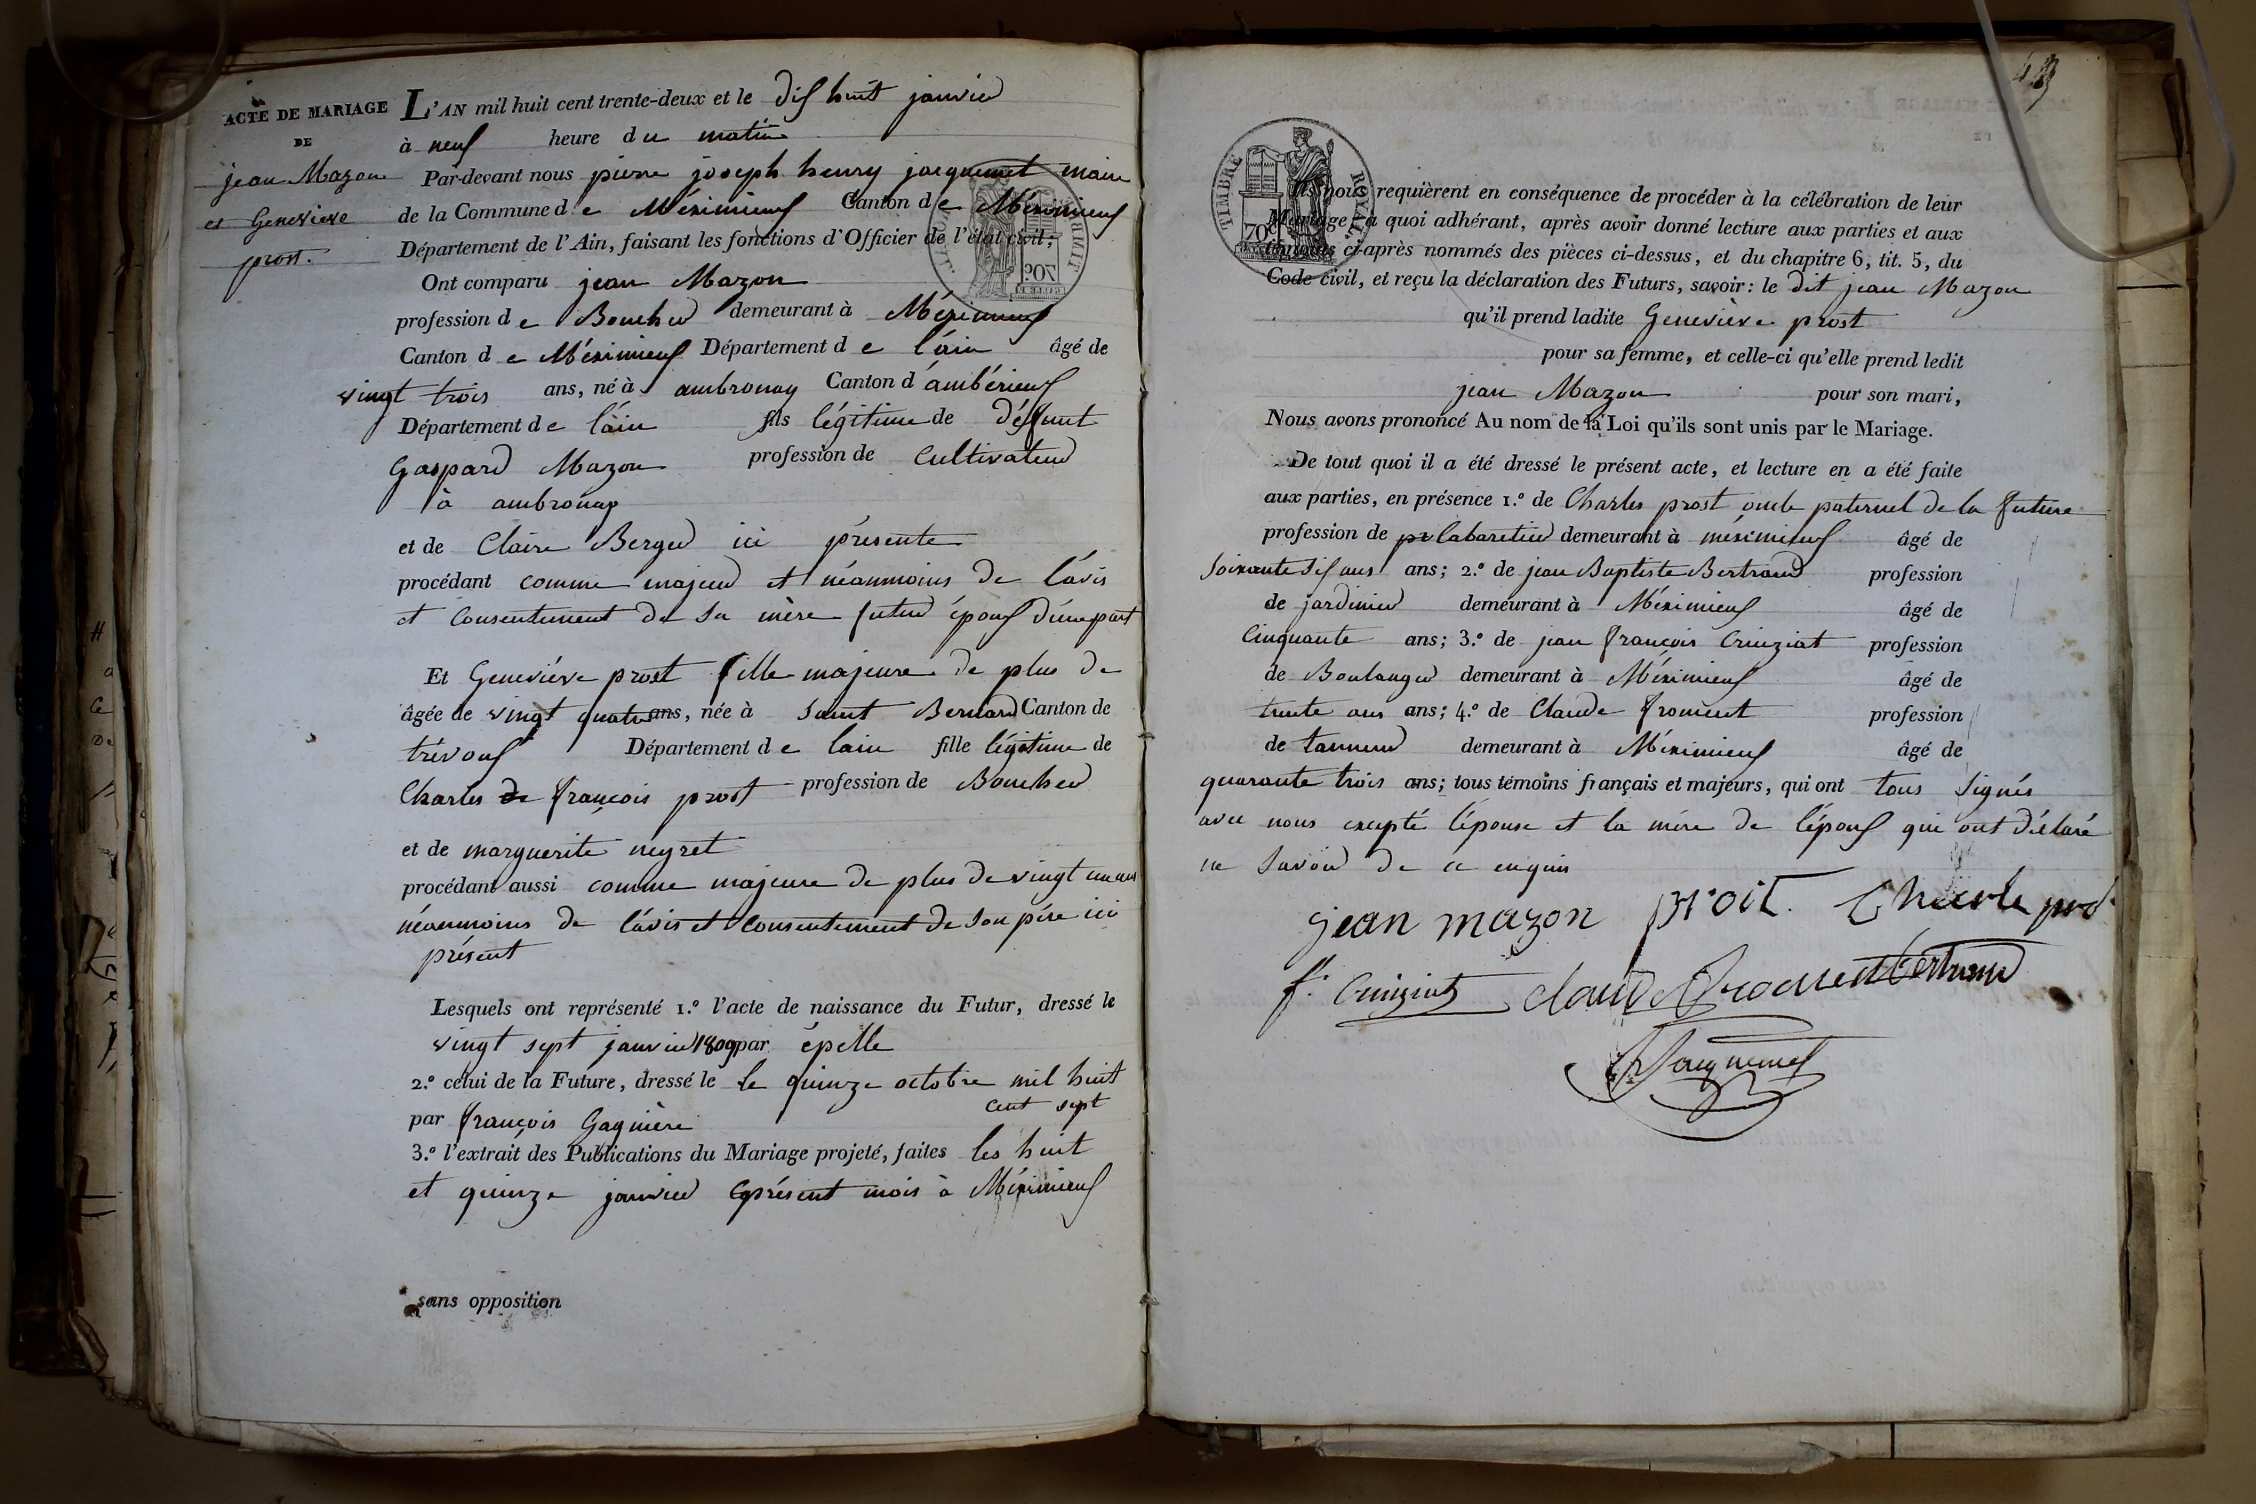 ACTE DE MARIAGE
DE
jean Mazon
et Geneviève
prost.
L'AN mil huit cent trente-deux et le dix huit janvier
à neuf heure du matin
Par-devant nous pierre joseph henry jacquemet maire
de la Commune de Méximieux Canton de Méximieux
Département de l'Ain, faisant les fonctions d'Officier de l'état civil;
Ont comparu jean Mazon
profession de Boucher demeurant à Méximieux
Canton de Méximieux Département de l'ain âgé de
vingt trois ans, né à ambronay Canton d'ambérieux
Département de l'ain fils légitime de défunt
Gaspard Mazon profession de Cultivateur
à ambronay
et de Claire Berger ici présente
procédant comme majeur et néanmoins de l'avis
et Consentement de sa mère futur époux d'une part
Et Geneviève prost fille majeure de plus de
âgée de vingt quatre ans, née à saint Bernard Canton de
trévoux Département de l'ain fille légitime de
Charles de françois prost profession de Boucher
et de marguerite neyret
procédant aussi comme majeure de plus de vingt un ans
néanmoins de l'avis et Consentement de son père ici
présent
Lesquels ont représenté 1.º l'acte de naissance du Futur, dressé le
vingt sept janvier 1809 par épelle
2.º celui de la Future, dressé le le quinze octobre mil huit
cent sept
par françois Gagnière
3.º l'extrait des Publications du Mariage projeté, faites les huit
et quinze janvier présent mois à Méximieux
sans opposition
TIMBRE ROYAL
70
Ils nous requièrent en conséquence de procéder à la célébration de leur
Mariage, à quoi adhérant, après avoir donné lecture aux parties et aux
témoins ci-après nommés des pièces ci-dessus, et du chapitre 6, tit. 5, du
Code civil, et reçu la déclaration des Futurs, savoir: le dit jean Mazon
qu'il prend ladite Geneviève prost
pour sa femme, et celle-ci qu'elle prend ledit
jean Mazon pour son mari,
Nous avons prononcé Au nom de la Loi qu'ils sont unis par le Mariage.
De tout quoi il a été dressé le présent acte, et lecture en a été faite
aux parties, en présence 1.º de Charles prost oncle paternel de la future
profession de Cabaretier demeurant à méximieux âgé de
soixante dix ans ans; 2.º de jean Baptiste Bertrand profession
de jardinier demeurant à Méximieux âgé de
Cinquante ans; 3.º de jean françois Cruiziat profession
de Boulanger demeurant à Méximieux âgé de
trente ans ans; 4.º de Claude froment profession
de tanneur demeurant à Méximieux âgé de
quarante trois ans; tous témoins français et majeurs, qui ont tous signés
avec nous excepté l'épouse et la mère de l'époux qui ont déclaré
ne savoir de ce enquis
jean mazon proit. Charle prost
f. Cruiziat claude froment Bertrand
Jacquemet